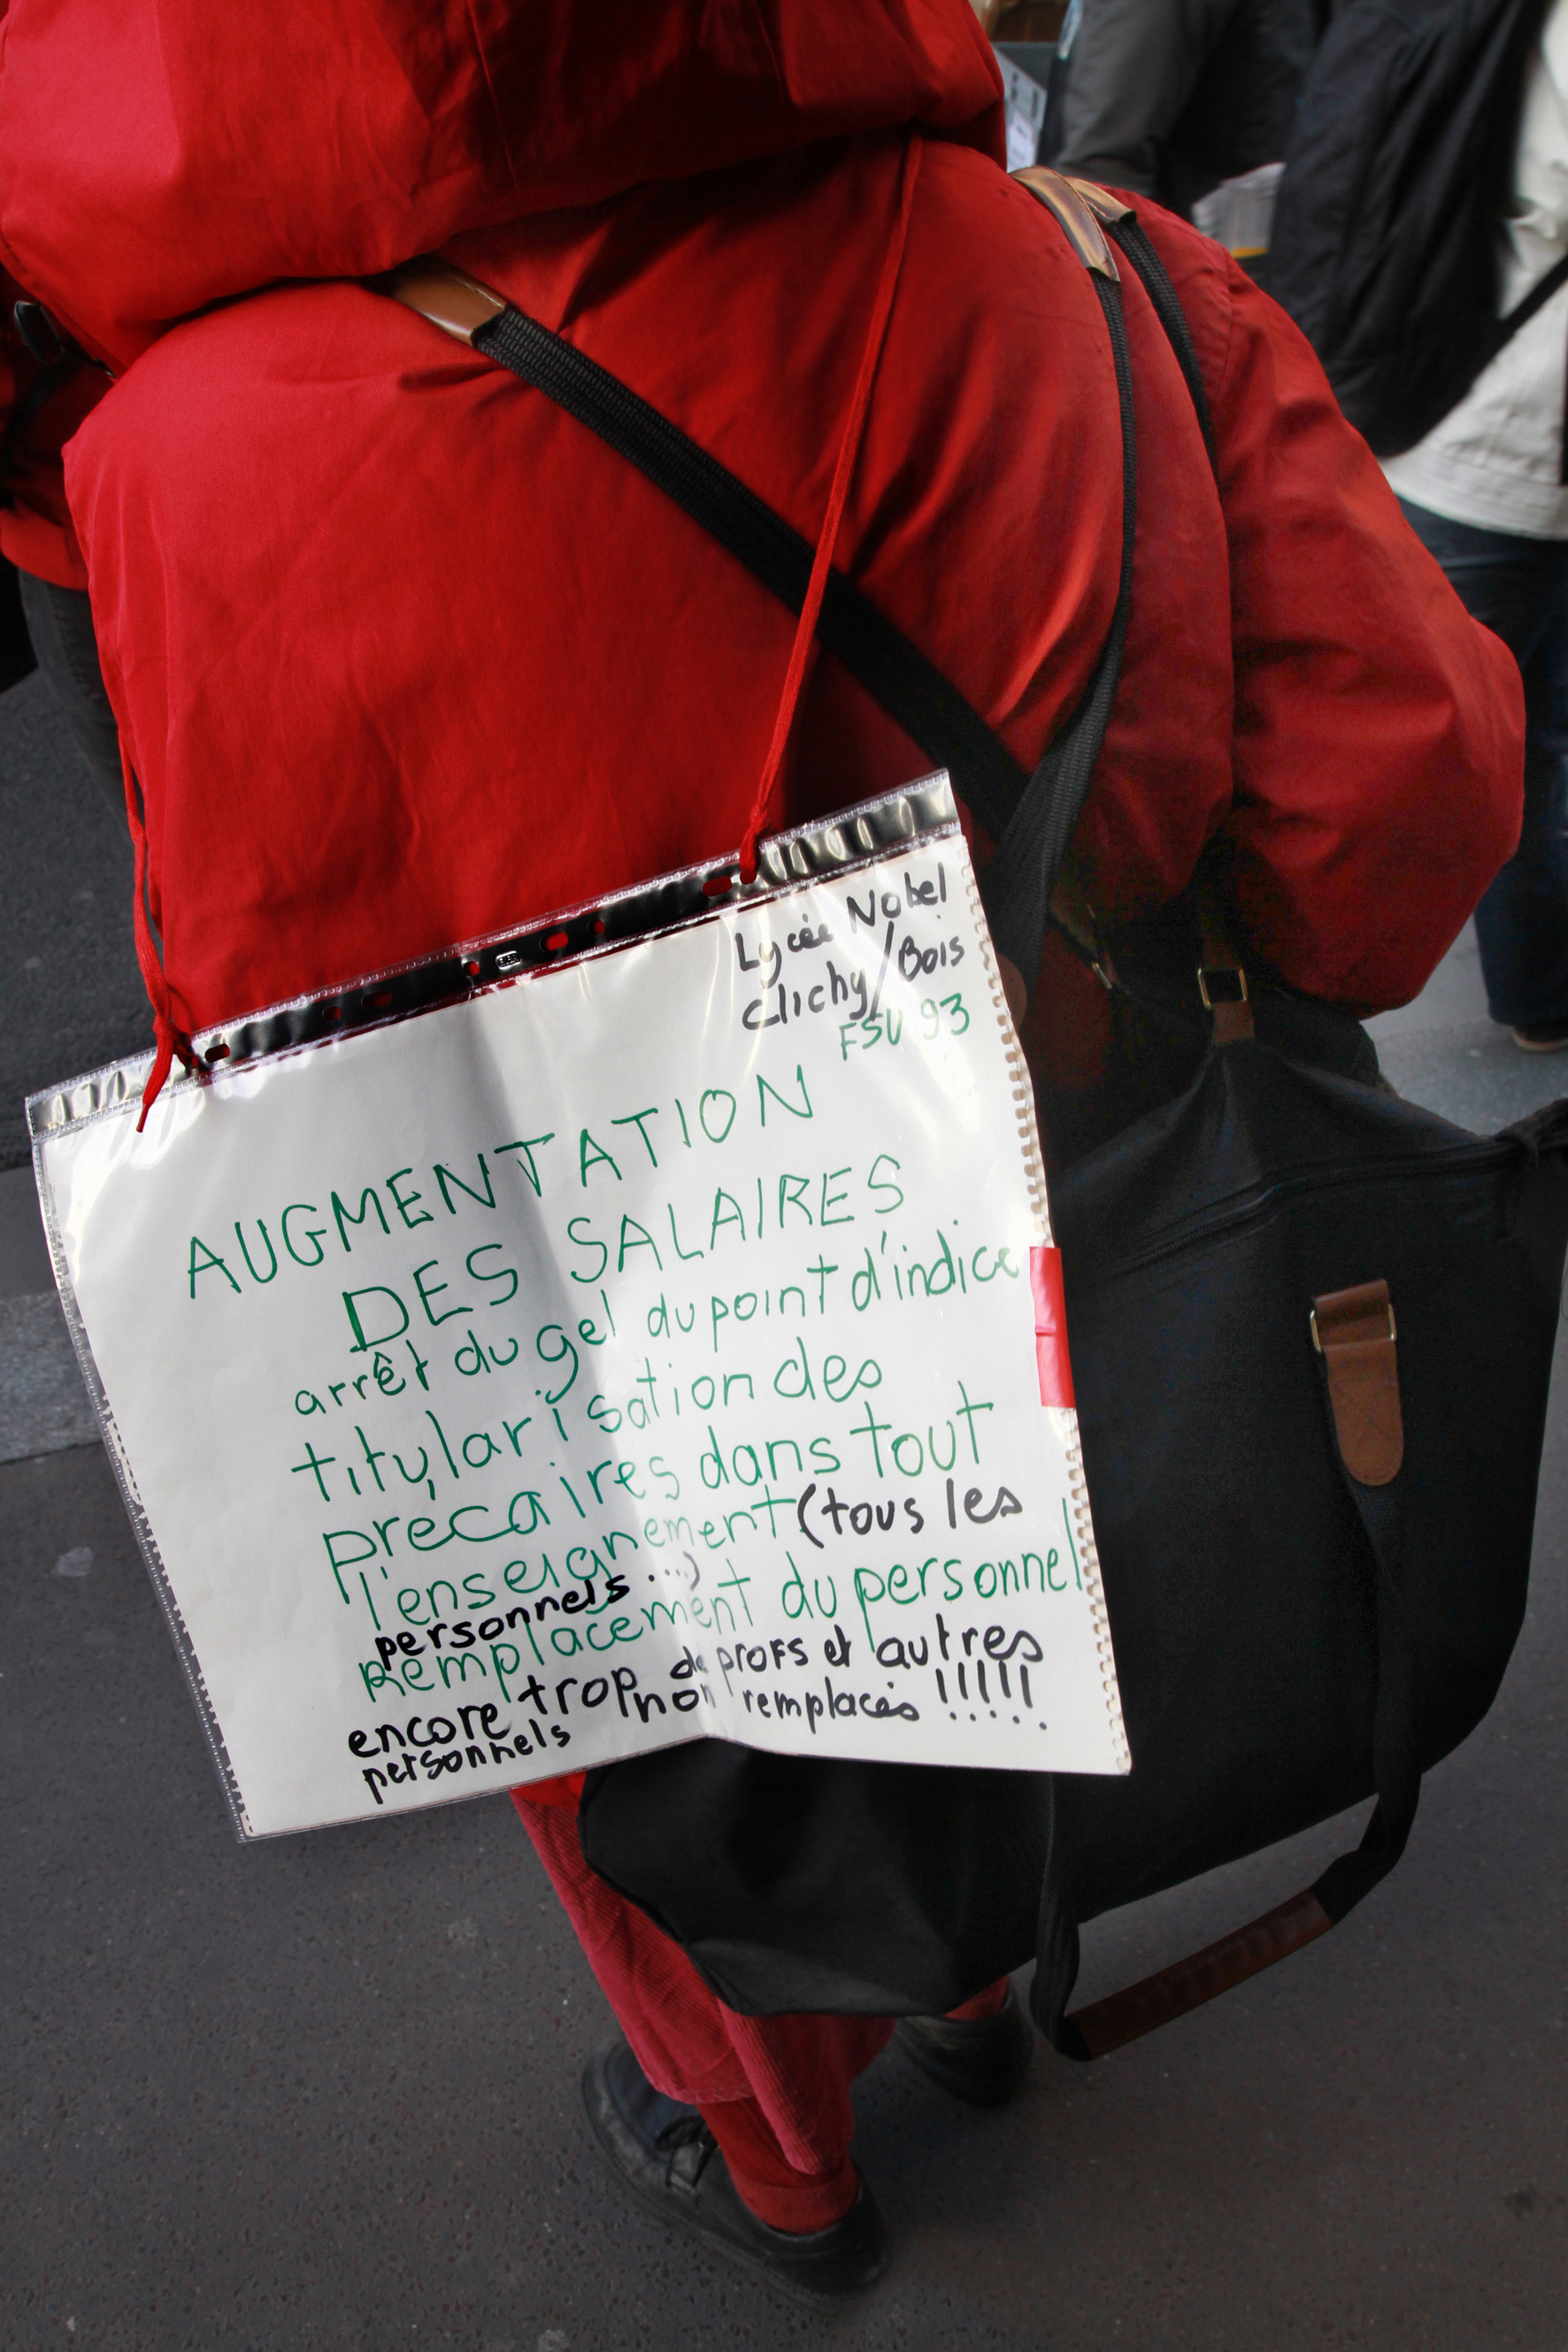 Lycée Nobel
Clichy/Bois
FSU 93
AUGMENTATION
DES SALAIRES
arrêt du gel du point d'indice
titularisation des
precaires dans tout
l'enseignement (tous les
personnels...)
Remplacement du personnel
encore trop de profs et autres
personnels non remplacés !!!!!